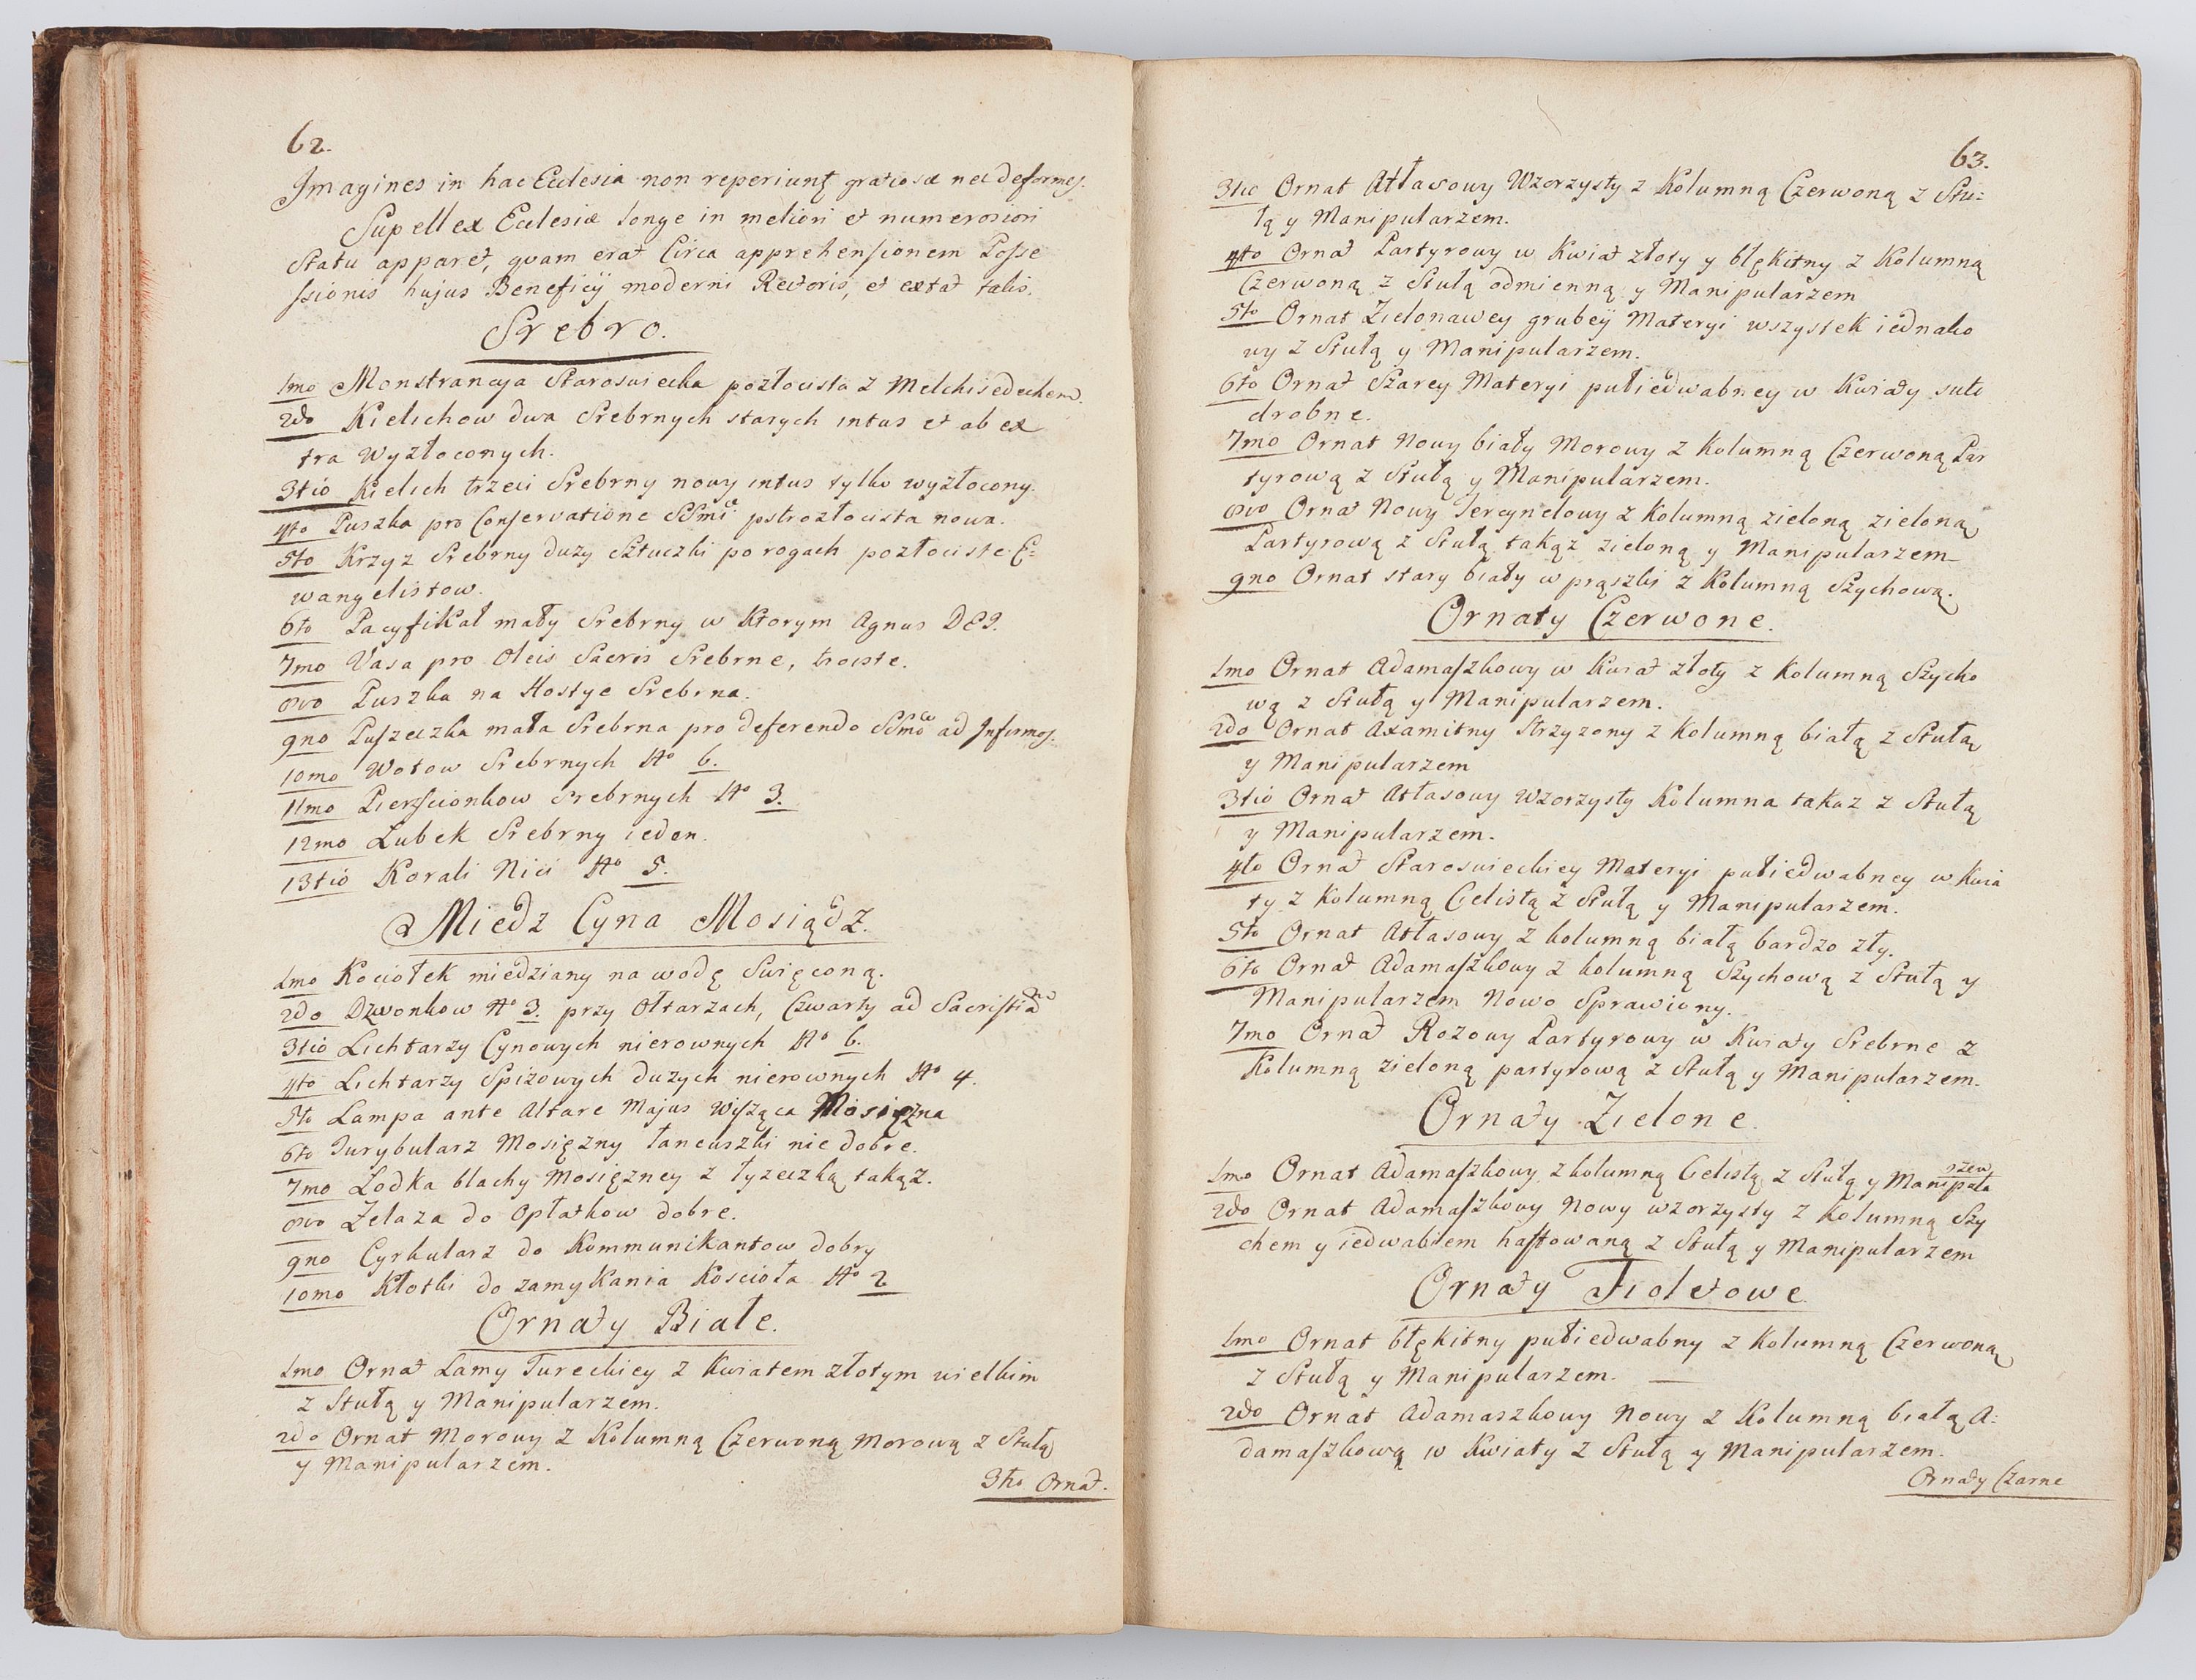 62.
Imagines in hac Ecclesia non reperiunt gratiosæ nec deformes.
Supellex Ecclesiæ longe in meliori et numerosiori
Statu apparet, quam erat Circa apprehensionem Posse
ssionis hujus Beneficij moderni Rectoris, et extat talis.
Srebro.
1mo Monstrancya Staroswiecka pozłocista z Melchisedechem.
2do Kielichow dwa Srebrnych starych intus et ab ex
tra Wyzłoconych.
3tio Kielich trzeci Srebrny nowy intus tylko wyzłocony.
4to Puszka pro Conservatione SSmi pstrozłocista nowa.
5to Krzyz Srebrny duzy Sztuczki po rogach pozłociste E=
wangelistow.
6to Pacyfikał mały Srebrny w Ktorym Agnus DEI.
7mo Vasa pro Oleis Sacris Srebrne, troiste.
8vo Puszka na Hostye Srebrna.
9no Puszeczka mała Srebrna pro deferendo SSmo ad Infirmos.
10mo Wotow Srebrnych No 6.
11mo Pierscionkow Srebrnych No 3.
12mo Lubek Srebrny ieden.
13tio Korali Nici No 5.
Miedz Cyna Mosiądz.
1mo Kociołek miedziany na wodę Swięconą.
2do Dzwonkow No 3. przy Ołtarzach, Czwarty ad Sacristiam
3tio Lichtarzy Cynowych nierownych No 6.
4to Lichtarzy Spizowych duzych nierownych No 4.
5to Lampa ante Altare Majus Wisząca Mosięzna
6to Turybularz Mosięzny łancuszki nie dobre.
7mo Łodka blachy Mosięzney z łyzeczką takąz.
8vo Zelaza do Opłatkow dobre.
9no Cyrkularz do Kommunikantow dobry
10mo Kłotki do zamykania Koscioła No 2
Ornaty Białe.
1mo Ornat Lamy Tureckiey z Kwiatem złotym wielkim
z Stułą y Manipularzem.
2do Ornat Morowy z Kolumną Czerwoną Morową z Stułą
y Manipularzem.
3tio Ornat.
63.
3tio Ornat Atłasowy Wzorzysty z Kolumną Czerwoną z Stu=
łą y Manipularzem.
4to Ornat Partyrowy w Kwiat złoty y błękitny z Kolumną
Czerwoną z Stułą odmienną y Manipularzem
5to Ornat Zielonawey grubey Materyi wszystek iednako
wy z Stułą y Manipularzem.
6to Ornat Szarey Materyi pułiedwabney w Kwiaty suto
drobne.
7mo Ornat Nowy biały Morowy z Kolumną Czerwoną Par
tyrową z Stułą y Manipularzem.
8vo Ornat Nowy Tercynelowy z Kolumną zieloną zieloną
Partyrową z Stułą takąz zieloną y Manipularzem
9no Ornat stary biały w prąszki z Kolumną Szychową.
Ornaty Czerwone.
1mo Ornat Adamaszkowy w Kwiat złoty z Kolumną Szycho
wą z Stułą y Manipularzem.
2do Ornat Axamitny Strzyzony z Kolumną białą z Stułą
y Manipularzem
3tio Ornat Atłasowy Wzorzysty Kolumna takaz z Stułą
y Manipularzem.
4to Ornat Staroswieckiey Materyi pułiedwabney w Kwia
ty z Kolumną Celistą z Stułą y Manipularzem.
5to Ornat Atłasowy z kolumną białą bardzo zły.
6to Ornat Adamaszkowy z kolumną Szychową z Stułą y
Manipularzem Nowo Sprawiony.
7mo Ornat Rozowy Partyrowy w Kwiaty Srebrne z
Kolumną zieloną partyrową z Stułą y Manipularzem.
Ornaty Zielone.
1mo Ornat Adamaszkowy z kolumną Celistą z Stułą y Manipula
rzem
2do Ornat Adamaszkowy Nowy wzorzysty z Kolumną Szy
chem y iedwabiem hastowaną z Stułą y Manipularzem
Ornaty Fioletowe.
1mo Ornat błękitny pułiedwabny z Kolumną Czerwoną
z Stułą y Manipularzem.
2do Ornat Adamaszkowy Nowy z Kolumną białą A=
damaszkową w Kwiaty z Stułą y Manipularzem.
Ornaty Czarne